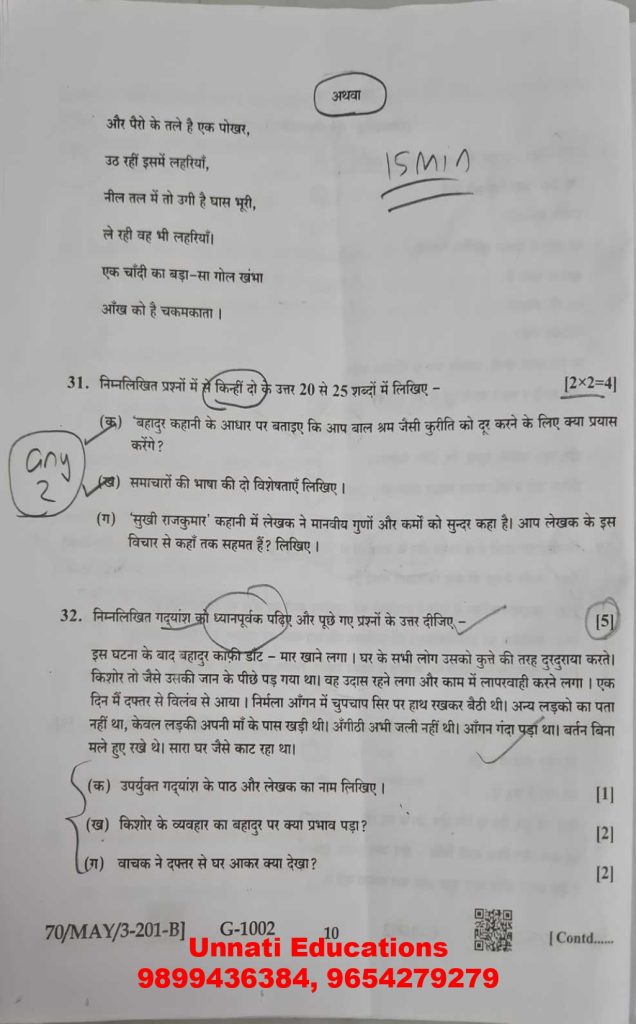 अथवा
और पैरो के तले है एक पोखर,
उठ रहीं इसमें लहरियाँ,
15 Min
नील तल में तो उगी है घास भूरी,
ले रही वह भी लहरियाँ।
एक चाँदी का बड़ा-सा गोल खंभा
आँख को है चकमकाता ।
31. निम्नलिखित प्रश्नों में से किन्हीं दो के उत्तर 20 से 25 शब्दों में लिखिए – [2×2=4]
(क) 'बहादुर कहानी के आधार पर बताइए कि आप बाल श्रम जैसी कुरीति को दूर करने के लिए क्या प्रयास
करेंगे?
any
2
(ख) समाचारों की भाषा की दो विशेषताएँ लिखिए ।
(ग) 'सुखी राजकुमार' कहानी में लेखक ने मानवीय गुणों और कर्मों को सुन्दर कहा है। आप लेखक के इस
विचार से कहाँ तक सहमत हैं? लिखिए ।
32. निम्नलिखित गद्यांश को ध्यानपूर्वक पढ़िए और पूछे गए प्रश्नों के उत्तर दीजिए – [5]
इस घटना के बाद बहादुर काफ़ी डाँट – मार खाने लगा । घर के सभी लोग उसको कुत्ते की तरह दुरदुराया करते।
किशोर तो जैसे उसकी जान के पीछे पड़ गया था। वह उदास रहने लगा और काम में लापरवाही करने लगा । एक
दिन मैं दफ्तर से विलंब से आया । निर्मला आँगन में चुपचाप सिर पर हाथ रखकर बैठी थी। अन्य लड़को का पता
नहीं था, केवल लड़की अपनी माँ के पास खड़ी थी। अँगीठी अभी जली नहीं थी। आँगन गंदा पड़ा था। बर्तन बिना
मले हुए रखे थे। सारा घर जैसे काट रहा था।
(क) उपर्युक्त गद्यांश के पाठ और लेखक का नाम लिखिए । [1]
(ख) किशोर के व्यवहार का बहादुर पर क्या प्रभाव पड़ा? [2]
(ग) वाचक ने दफ्तर से घर आकर क्या देखा? [2]
70/MAY/3-201-B] G-1002 10 [Contd......
Unnati Educations
9899436384, 9654279279